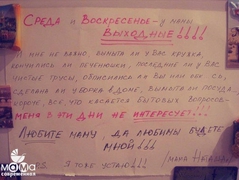 Среда и Воскресенье - у мамы
Выходные!!!!
мне не важно, вымыта ли у вас кружка,
кончились ли печенюшки, последние ли у вас
чистые трусы, обписались ли вы или сок
сделана ли уборка в доме, вымыта ли посуда
короче, всё, что касается бытовых вопросов
меня в эти дни не интересует...
Любите маму, да любимы будете
мной!!!
Я тоже устаю!!! /мама
мама
современная